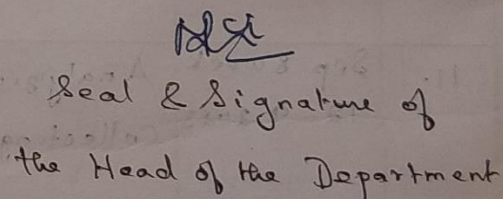 Seal & Signature of
the Head of the Department